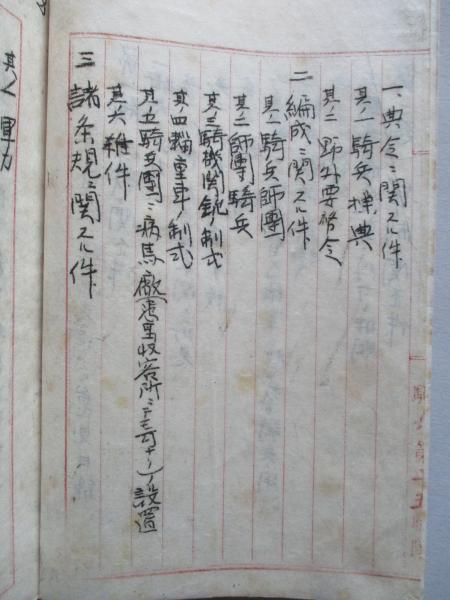 一、典令ニ関スル件
其ノ一 騎兵操典
其ノ二 野外要務令
二 編成ニ関スル件
其ノ一 騎兵師團
其ノ二 師團騎兵
其ノ三 騎機関銃ノ制式
其ノ四 輜重車ノ制式
其ノ五 騎兵團ニ病馬廠 設置
其ノ六 雑件
三 諸条規ニ関スル件